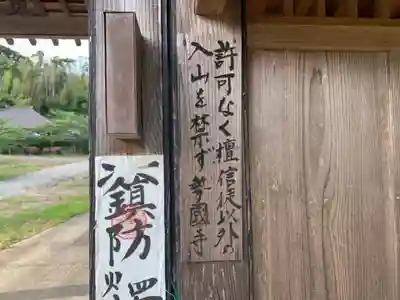 許可なく檀信徒以外の
入山を禁ず 等國寺
鎮防火